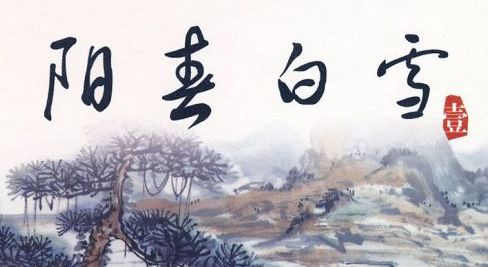 阳春白雪
壹